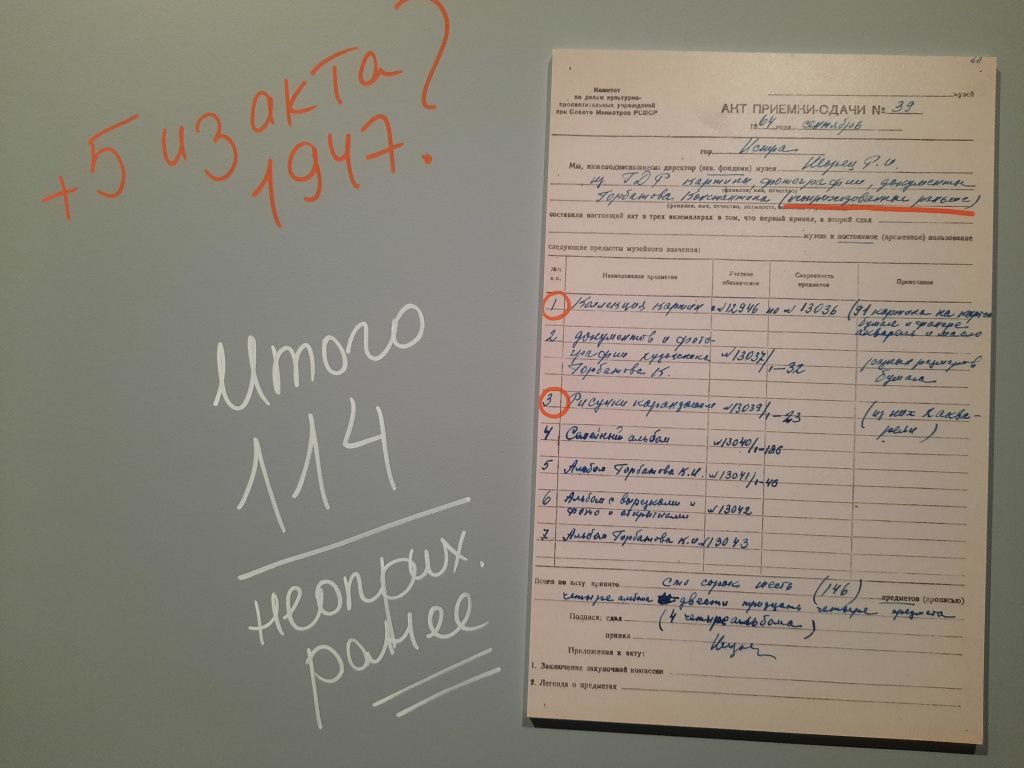 +5 из акта
1947.?
Итого
114
неоприх.
ранее
Комитет
по делам культурно-
просветительных учреждений
при Совете Министров РСФСР
музей
АКТ ПРИЕМКИ-СДАЧИ № 39
1964 года сентябрь
гор. Истра
Мы, нижеподписавшиеся: директор (зав. фондами) музея
из ГДР картины фотографии, документы
(фамилия, имя, отчество)
Горбатова Константина (неоприходованные раньше)
составили настоящий акт в трех экземплярах в том, что первый принял, а второй сдал
музею в постоянное (временное) пользование
следующие предметы музейного значения:
№№ п.п. Наименование предметов Учетное обозначение Сохранность предметов Примечание
1 Коллекция картин с №12946 по №13036 (91 картина на картоне
бумаге и фанере
акварель и масло
2 документов и фото-
графии художника №13037/1-32 разных размеров
Горбатова К. бумага
3 Рисунки карандашом №13039/1-23 (из них 2 аква-
рели)
4 Семейный альбом №13040/1-126
5 Альбом Горбатова К.И. №13041/1-46
6 Альбом с вырезками и
фото и открытками №13042
7 Альбом Горбатова К.И. №13043
Всего по акту принято сто сорок шесть (146) предметов (прописью)
четыре альбома двести тридцать четыре предмета
Подписи: сдал (4 четыре альбома)
принял
Приложения к акту:
1. Заключение закупочной комиссии
2. Легенда о предметах